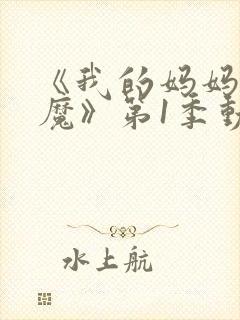 《我的妈妈
魔》第1季動
水上航